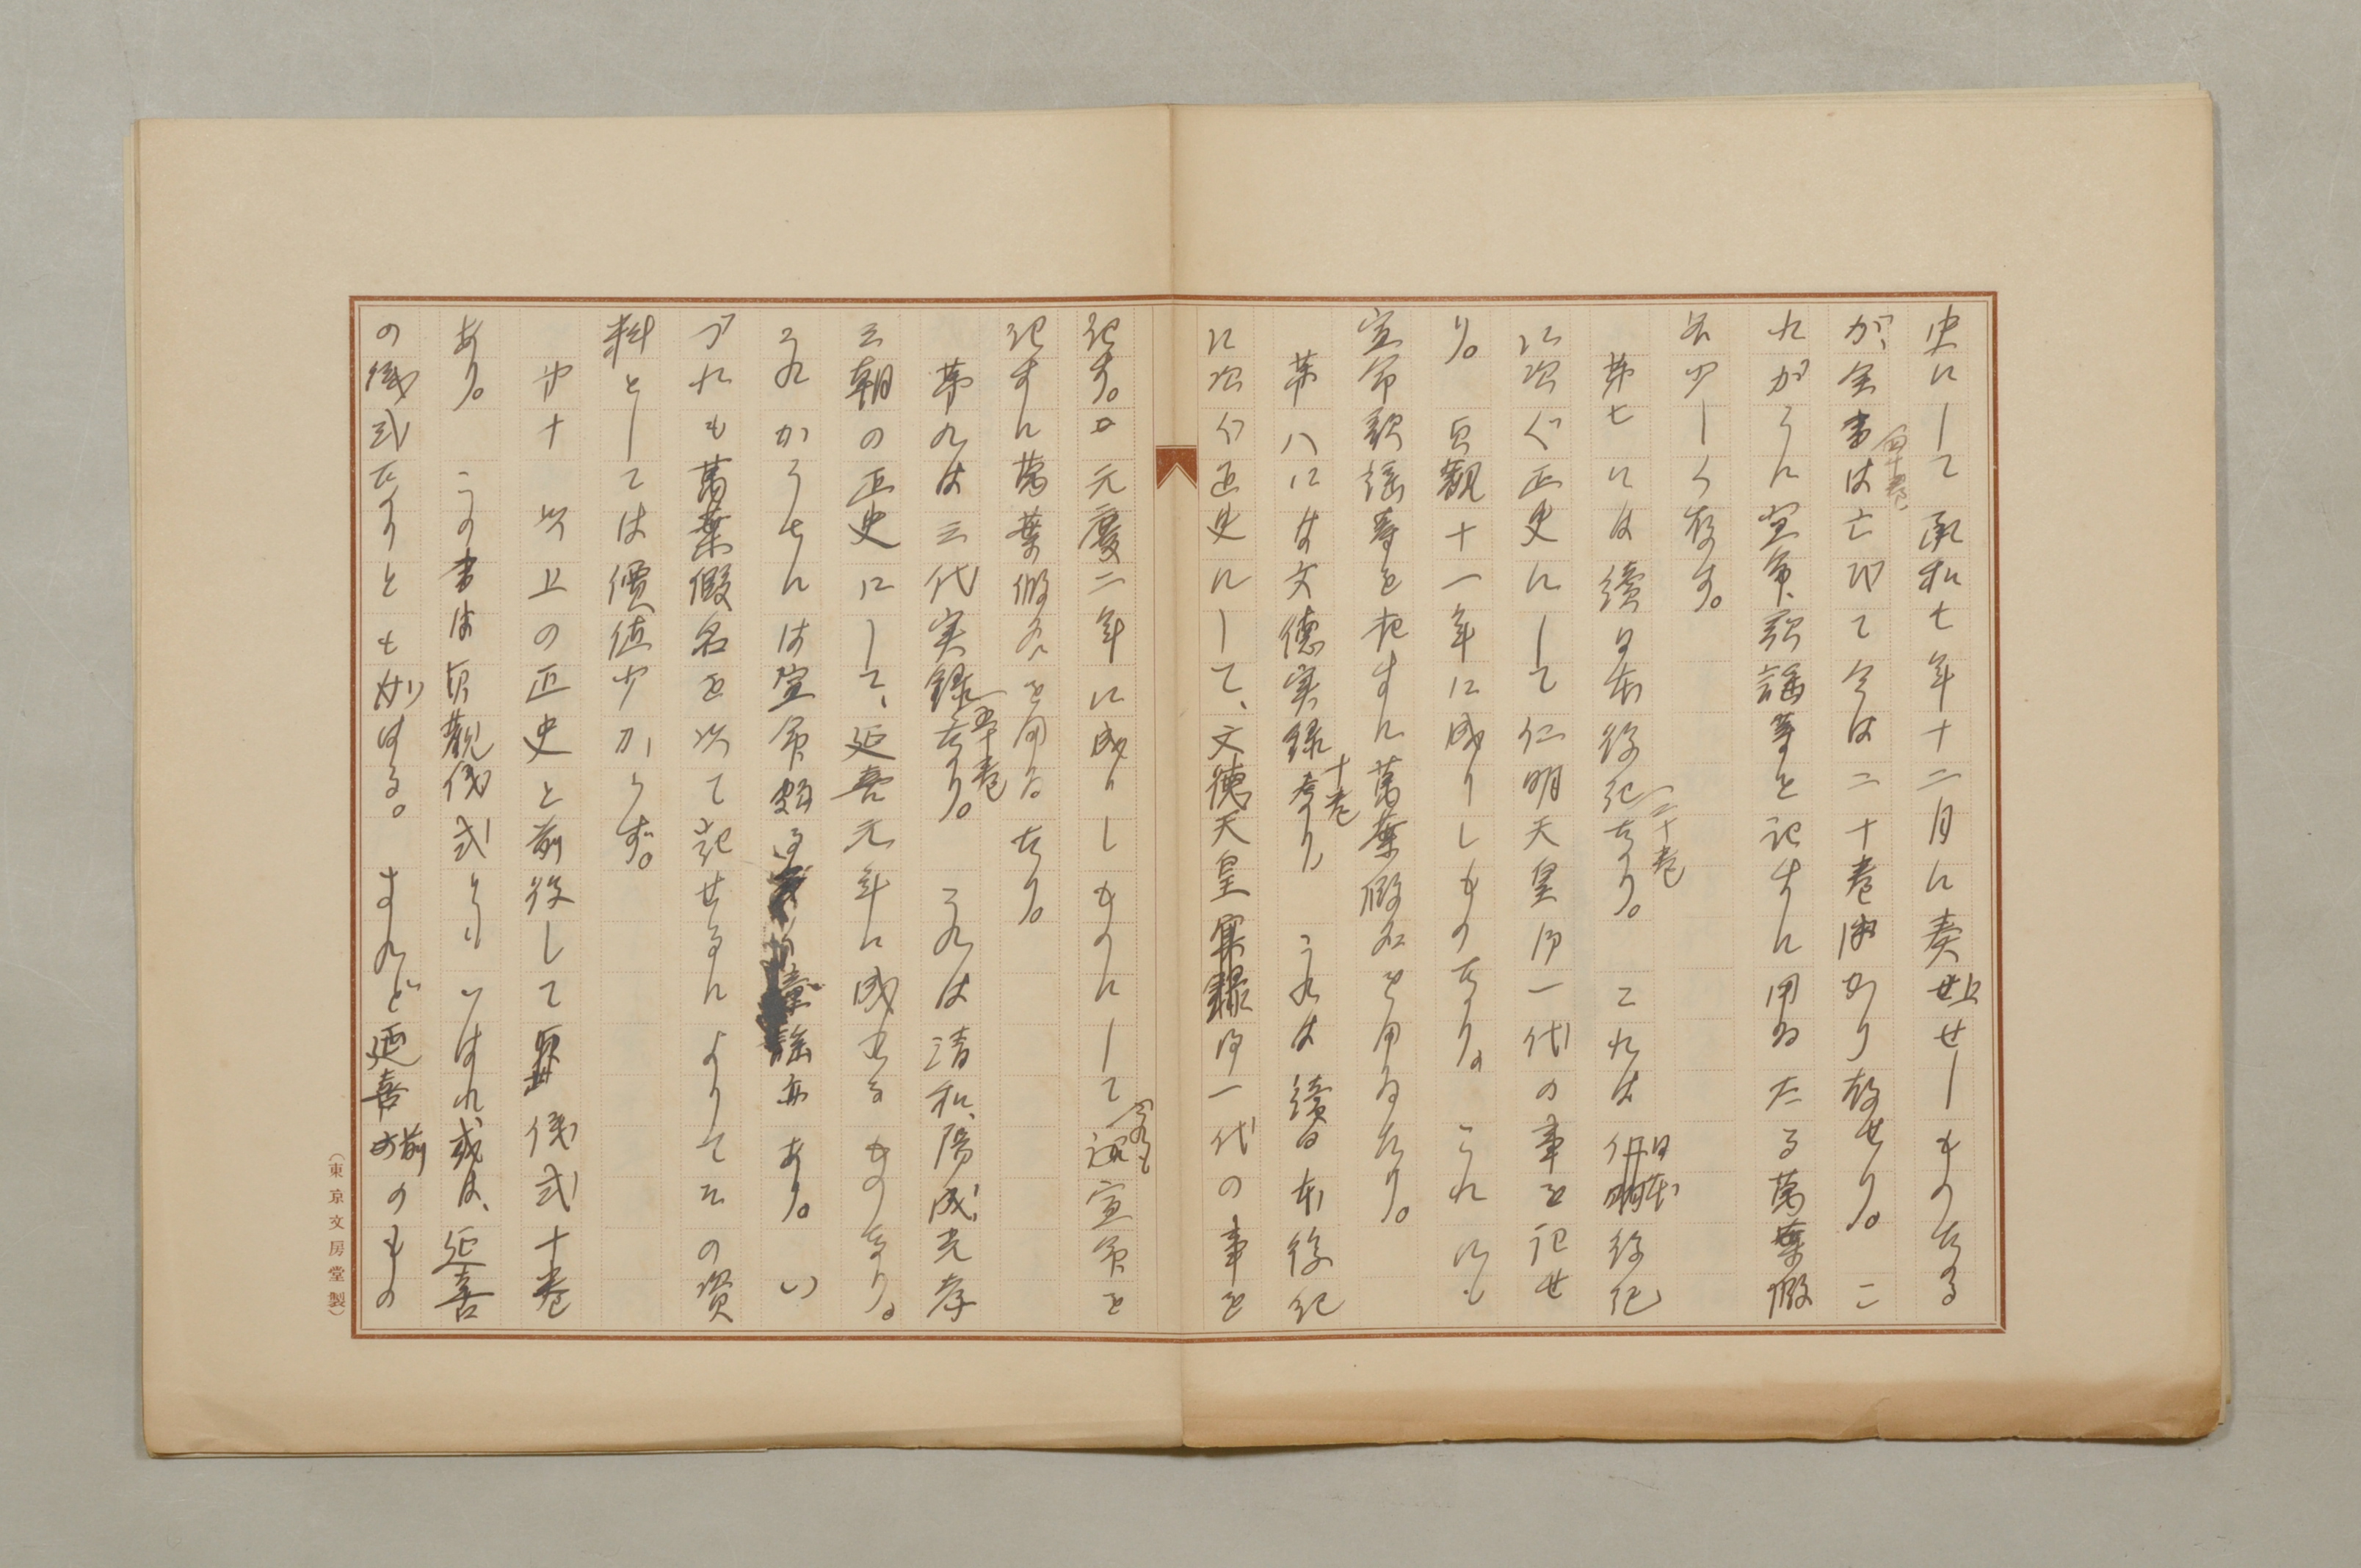 史にして承和七年十二月に奏上せしものなる
が、全書四十巻は亡びて今は二十巻ばかり存せり。こ
れがうちに宣命、歌謡等を記すに用ゐたる萬葉假
名少しく存す。
第七には續日本後紀二十巻なり。これは日本後紀
に次ぐ正史にして仁明天皇御一代の事を記せ
り。貞觀十一年に成りしものなり。これにも
宣命歌謡等を記すに萬葉假名を用ゐたり。
第八には文德実録十巻なり、これは續日本後紀
に次ぐ正史にして、文德天皇寔録御一代の事を
記す。元慶二年に成りしものにして、これも宣命を
記すに萬葉假名を用ゐたり。
第九は三代実録五十巻なり。これは清和、陽成、光孝
三朝の正史にして、延喜元年に成れるものなり。
これがうちには宣命頗る童謡亦あり。い
づれも萬葉假名を以て記せるによりてその資
料としては價値少からず。
第十 以上の正史と前後して儀式十巻
あり。この書は貞觀儀式といはれ、或は、延喜
の儀式なりともいはる。されど延喜前のもの
（東京文房堂製）